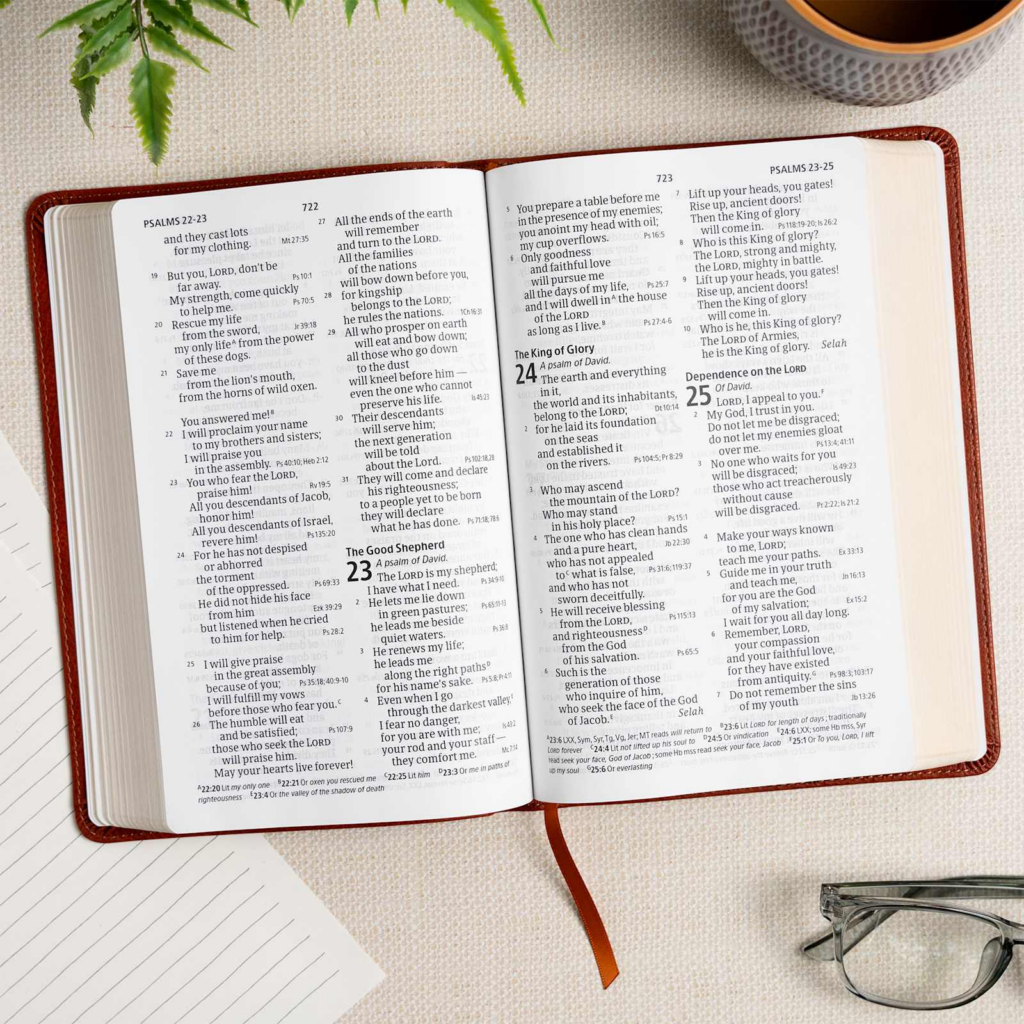 PSALMS 22-23
722
and they cast lots
for my clothing. Mt 27:35
19 But you, LORD, don't be
far away. Ps 10:1
My strength, come quickly
to help me. Ps 70:5
20 Rescue my life
from the sword, Jr 39:18
my only lifeᴬ from the power
of these dogs.
21 Save me
from the lion's mouth,
from the horns of wild oxen.
You answered me!ᴮ
22 I will proclaim your name
to my brothers and sisters;
I will praise you
in the assembly. Ps 40:10; Heb 2:12
23 You who fear the LORD,
praise him! Rv 19:5
All you descendants of Jacob,
honor him!
All you descendants of Israel,
revere him! Ps 135:20
24 For he has not despised
or abhorred
the torment
of the oppressed. Ps 69:33
He did not hide his face
from him Ezk 39:29
but listened when he cried
to him for help. Ps 28:2
25 I will give praise
in the great assembly
because of you; Ps 35:18; 40:9-10
I will fulfill my vows
before those who fear you.ᶜ
26 The humble will eat
and be satisfied; Ps 107:9
those who seek the LORD
will praise him.
May your hearts live forever!
27 All the ends of the earth
will remember
and turn to the LORD.
All the families
of the nations
will bow down before you,
28 for kingship
belongs to the LORD;
he rules the nations. 1Ch 16:31
29 All who prosper on earth
will eat and bow down;
all those who go down
to the dust
will kneel before him —
even the one who cannot
preserve his life. Is 45:23
30 Their descendants
will serve him;
the next generation
will be told
about the Lord. Ps 102:18,28
31 They will come and declare
his righteousness;
to a people yet to be born
they will declare
what he has done. Ps 71:18; 78:6
The Good Shepherd
23 A psalm of David.
The LORD is my shepherd;
I have what I need. Ps 34:9-10
2 He lets me lie down
in green pastures; Ps 65:11-13
he leads me beside
quiet waters. Ps 36:8
3 He renews my life;
he leads me
along the right pathsᴰ
for his name's sake. Ps 5:8; Pr 4:11
4 Even when I go
through the darkest valley,ᴱ
I fear no danger,
for you are with me; Is 43:2
your rod and your staff —
they comfort me. Mc 7:14
ᴬ22:20 Lit my only one ᴮ22:21 Or oxen you rescued me ᶜ22:25 Lit him ᴰ23:3 Or me in paths of
righteousness ᴱ23:4 Or the valley of the shadow of death
723
PSALMS 23-25
5 You prepare a table before me
in the presence of my enemies;
you anoint my head with oil;
my cup overflows. Ps 16:5
6 Only goodness
and faithful love
will pursue me
all the days of my life, Ps 25:7
and I will dwell inᴬ the house
of the LORD
as long as I live.ᴮ Ps 27:4-6
The King of Glory
24 A psalm of David.
The earth and everything
in it,
the world and its inhabitants,
belong to the LORD; Dt 10:14
2 for he laid its foundation
on the seas
and established it
on the rivers. Ps 104:5; Pr 8:29
3 Who may ascend
the mountain of the LORD?
Who may stand
in his holy place? Ps 15:1
4 The one who has clean hands
and a pure heart, Jb 22:30
who has not appealed
toᶜ what is false, Ps 31:6; 119:37
and who has not
sworn deceitfully.
5 He will receive blessing
from the LORD, Ps 115:13
and righteousnessᴰ
from the God
of his salvation. Ps 65:5
6 Such is the
generation of those
who inquire of him,
who seek the face of the God
of Jacob.ᴱ Selah
7 Lift up your heads, you gates!
Rise up, ancient doors!
Then the King of glory
will come in. Ps 118:19-20; Is 26:2
8 Who is this King of glory?
The LORD, strong and mighty,
the LORD, mighty in battle.
9 Lift up your heads, you gates!
Rise up, ancient doors!
Then the King of glory
will come in.
10 Who is he, this King of glory?
The LORD of Armies,
he is the King of glory. Selah
Dependence on the LORD
25 Of David.
LORD, I appeal to you.ᶠ
2 My God, I trust in you.
Do not let me be disgraced;
do not let my enemies gloat
over me. Ps 13:4; 41:11
3 No one who waits for you
will be disgraced; Is 49:23
those who act treacherously
without cause
will be disgraced. Pr 2:22; Is 21:2
4 Make your ways known
to me, LORD;
teach me your paths. Ex 33:13
5 Guide me in your truth
and teach me, Jn 16:13
for you are the God
of my salvation; Ex 15:2
I wait for you all day long.
6 Remember, LORD,
your compassion
and your faithful love,
for they have existed
from antiquity.ᴳ Ps 98:3; 103:17
7 Do not remember the sins
of my youth Jb 13:26
ᴬ23:6 LXX, Sym, Syr, Tg, Vg, Jer; MT reads will return to ᴮ23:6 Lit LORD for length of days; traditionally
LORD forever ᶜ24:4 Lit not lifted up his soul to ᴰ24:5 Or vindication ᴱ24:6 LXX; some Hb mss, Syr
read seek your face, God of Jacob; some Hb mss read seek your face, Jacob ᶠ25:1 Or To you, LORD, I lift
up my soul ᴳ25:6 Or everlasting